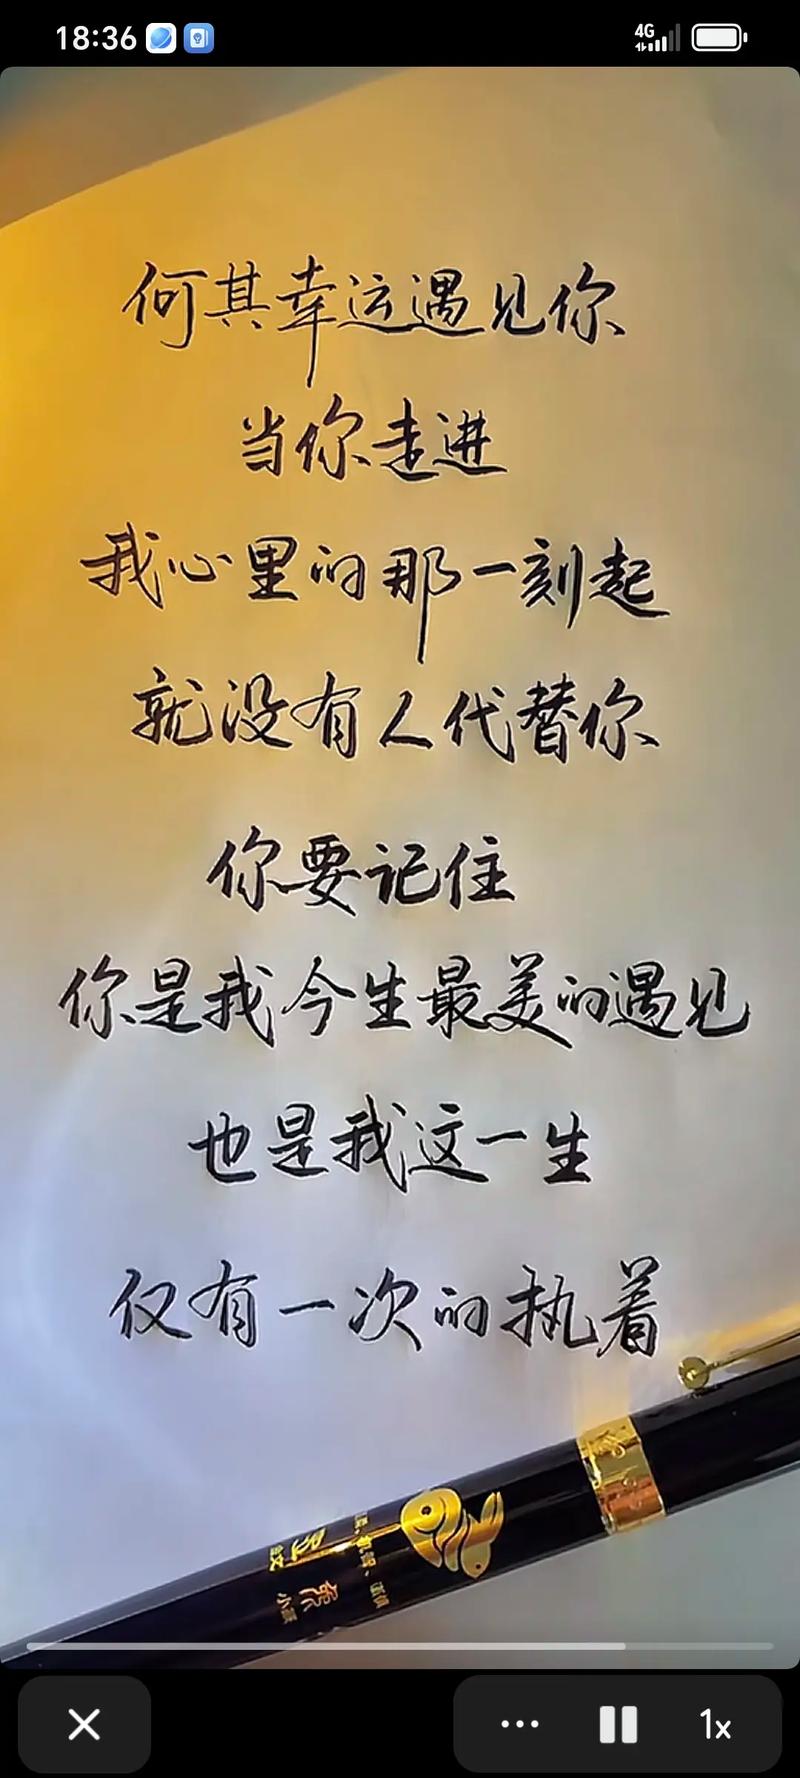 18:36
4G
何其幸运遇见你
当你走进
我心里的那一刻起
就没有人代替你
你要记住
你是我今生最美的遇见
也是我这一生
仅有一次的执着
1x